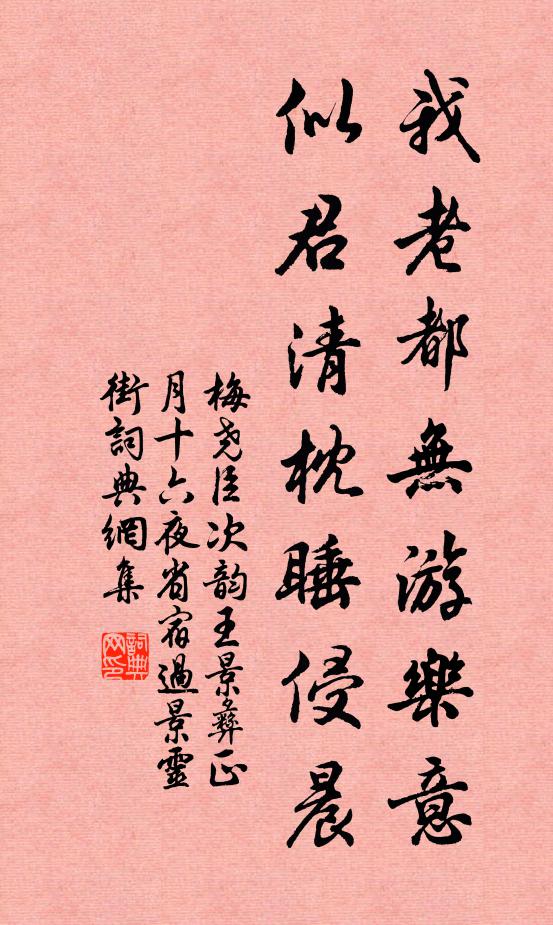 我老都無游樂意
似君清枕睡侵晨
梅尧臣次韵王景彝正
月十六夜省宿過景靈
街詞典網集
詞典网印